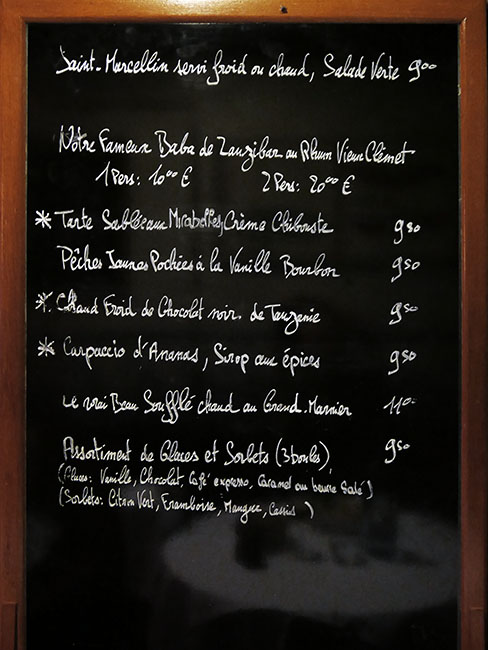 Saint-Marcellin servi froid ou chaud, Salade Verte 9 00
Notre Fameux Baba de Zanzibar au Rhum Vieux Clément
1 Pers: 10 00 € 2 Pers: 20 00 €
* Tarte Sablée aux Mirabelles, Crème Chibouste 9 50
Pêches Jaunes Pochées à la Vanille Bourbon 9 50
* Chaud Froid de Chocolat noir de Tanzanie 9 50
* Carpaccio d'Ananas, Sirop aux épices 9 50
Le vrai Beau Soufflé chaud au Grand-Marnier 11 0-
Assortiment de Glaces et Sorbets (3 boules) 9 50
(Glaces: Vanille, Chocolat, Café expresso, Caramel au beurre Salé)
(Sorbets: Citron Vert, Framboise, Mangue, Cassis)